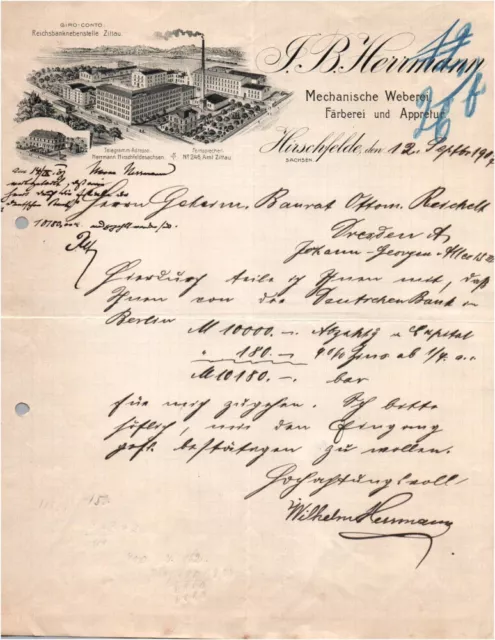 GIRO-CONTO
Reichsbanknebenstelle Zittau
J. B. Herrmann
Mechanische Weberei
Färberei und Appretur
Telegramm-Adresse:
Herrmann Hirschfeldesachsen.
Fernsprecher:
Nº 246, Amt Zittau
Hirschfelde, den 12. Septbr 1907
SACHSEN
Herrn Herrmann
Herrn Geheim. Baurat Ottom. Reichelt
Dresden A.
Johann-Georgen-Allee
Hierdurch teile ich Ihnen mit, daß
Ihnen von der Deutschen Bank in
Berlin
M 10000.-. Abzahlg a Capital
" 180.- 4% Zins ab 1/4.
M 10180.-. bar
für mich zugehen. Ich bitte
höflich, mir den Eingang
gefl. bestätigen zu wollen.
Hochachtungsvoll
Wilhelm Herrmann